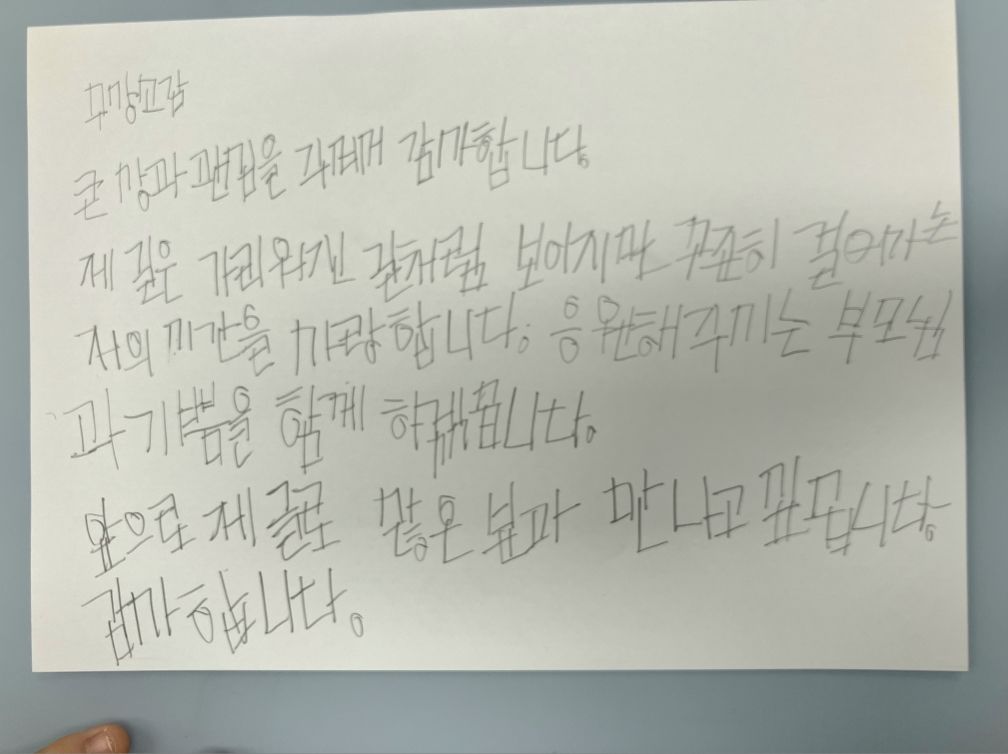 수상소감
큰 상과 관심을 주셔서 감사합니다.
제 길은 가려워진 길처럼 보이지만 꾸준히 걸어가는
저의 시간을 사랑합니다. 응원해주시는 부모님
과 기쁨을 함께 하고 싶습니다.
앞으로 제 글로 많은 분과 만나고 싶습니다.
감사합니다.